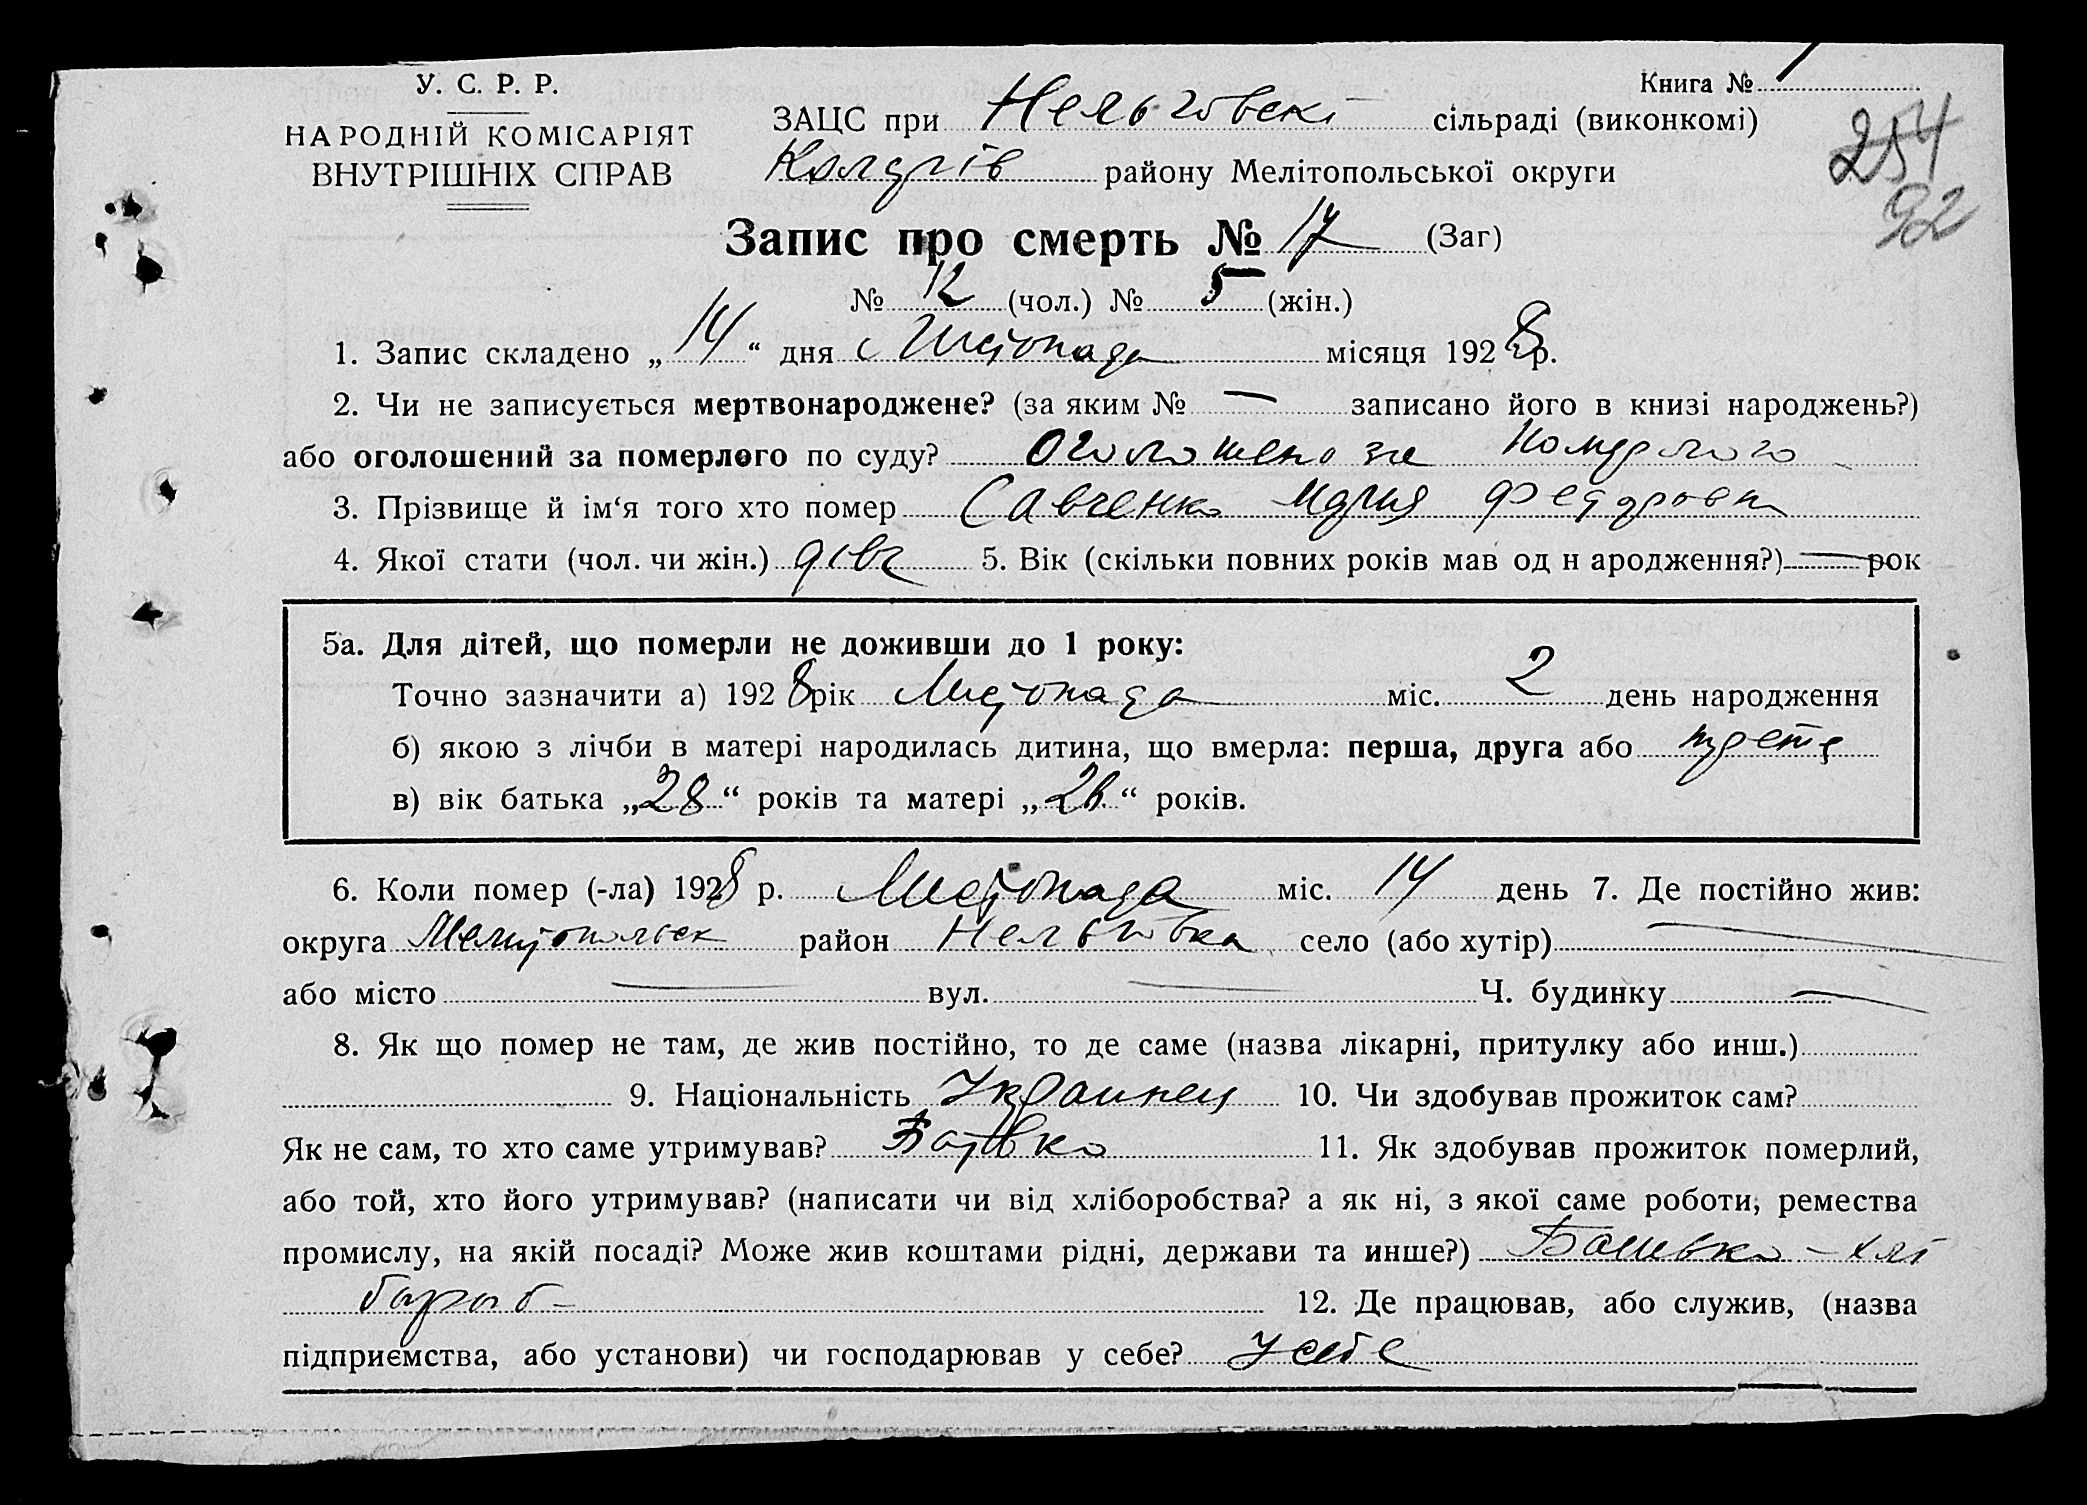 У. С. Р. Р.
НАРОДНІЙ КОМІСАРІЯТ
ВНУТРІШНІХ СПРАВ
Книга №
ЗАЦС при Нельговскі сільраді (виконкомі)
району Мелітопольської округи
254
92
Запис про смерть № 17 (Заг)
№ 12 (чол.) № 5 (жін.)
1. Запис складено „14“ дня Листопада місяця 1928 р.
2. Чи не записується мертвонароджене? (за яким № — записано його в книзі народжень?)
або оголошений за померлого по суду? Оголошено за Померлого
3. Прізвище й ім‘я того хто помер Савченко Мария Федоровна
4. Якої стати (чол. чи жін.) дівч 5. Вік (скільки повних років мав од н ародження?) — рок
5а. Для дітей, що померли не доживши до 1 року:
Точно зазначити а) 1928 рік Листопада міс. 2 день народження
б) якою з лічби в матері народилась дитина, що вмерла: перша, друга або третя
в) вік батька „28“ років та матері „26“ років.
6. Коли помер (-ла) 1928 р. Листопада міс. 14 день 7. Де постійно жив:
округа Мелитопольск район Нельговка село (або хутір) —
або місто — вул. — Ч. будинку —
8. Як що помер не там, де жив постійно, то де саме (назва лікарні, притулку або инш.)
9. Національність Украинец 10. Чи здобував прожиток сам?
Як не сам, то хто саме утримував? Батько 11. Як здобував прожиток померлий,
або той, хто його утримував? (написати чи від хліборобства? а як ні, з якої саме роботи, ремества
промислу, на якій посаді? Може жив коштами рідні, держави та инше?) Батько – хлі
бороб – 12. Де працював, або служив, (назва
підприємства, або установи) чи господарював у себе? У себе